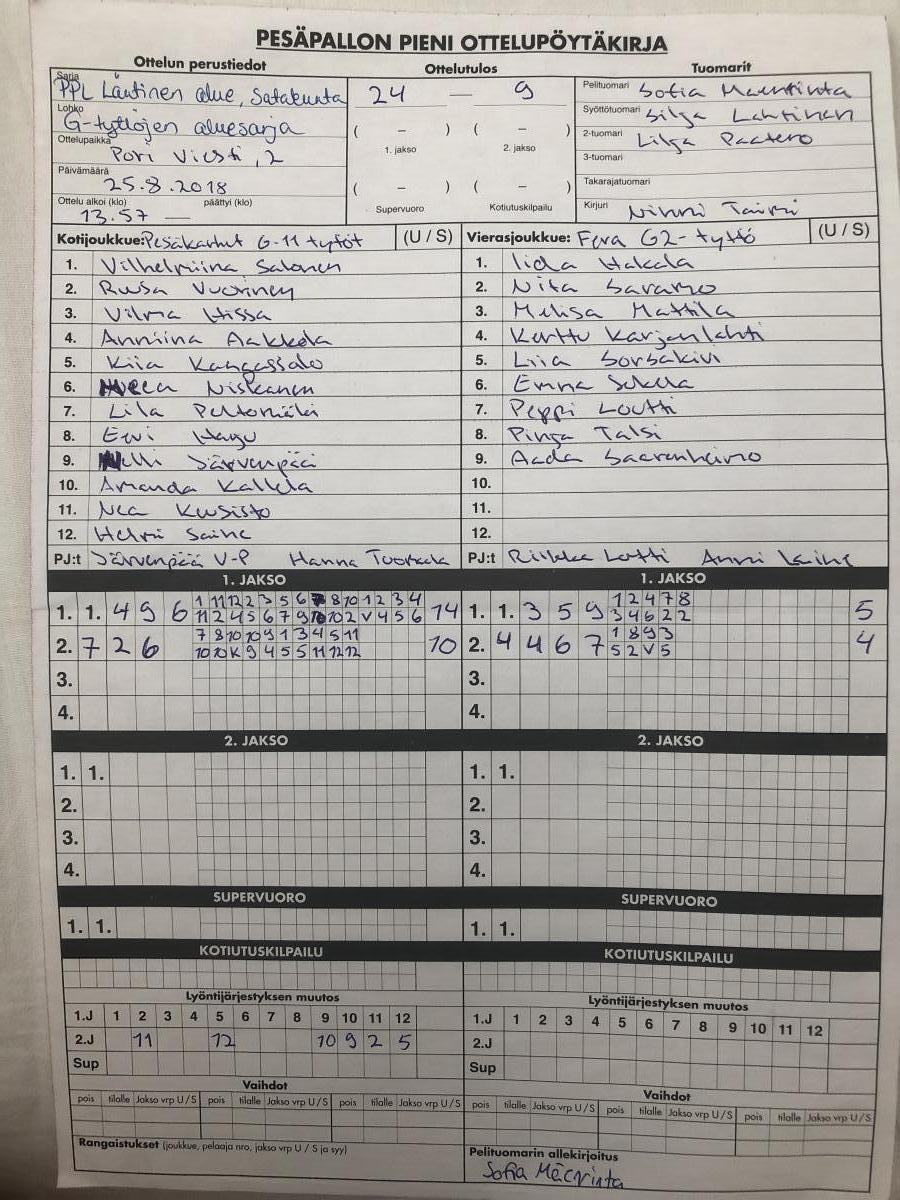 PESÄPALLON PIENI OTTELUPÖYTÄKIRJA
Ottelun perustiedot
Ottelutulos
Tuomarit
Sarja PPL Läntinen alue, Satakunta
24 — 9
Pelituomari Sofia
Lohko G-tyttöjen aluesarja
( – ) ( – )
1. jakso 2. jakso
Syöttötuomari Silja Lahtinen
Ottelupaikka Pori Viesti, 2
2-tuomari Lilja Paatero
3-tuomari
Päivämäärä 25.8.2018
( – ) ( – )
Supervuoro Kotiutuskilpailu
Takarajatuomari
Ottelu alkoi (klo) päättyi (klo)
13.57 —
Kirjuri Ninni Taimi
Kotijoukkue: Pesäkarhut G-11 tytöt (U / S)
Vierasjoukkue: Fera G2-tyttö (U / S)
1. Vilhelmiina Salonen 1. Iida Hakala
2. Ruusa Vuorinen 2. Nita Saramo
3. Vilma Hissa 3. Melisa Mattila
4. Anniina Aakkela 4. Kerttu Karjanlahti
5. Kiia Kangassalo 5. Liia Sorsakivi
6. Niskanen 6. Emma
7. Lila Peltomäki 7. Peppi Loutti
8. Eevi Harju 8. Pinja Talsi
9. Nelli Järvenpää 9. Aada Saarenheimo
10. Amanda Kallela 10.
11. Nea Kuusisto 11.
12. Helmi Saine 12.
PJ:t Järvenpää V-P Hanna
PJ:t Riikka Lotti Anni Laine
1. JAKSO 1. JAKSO
1. 1. 4 9 6 1 11 12 2 3 5 6 8 10 1 2 3 4 14
11 2 4 5 6 7 9 10 2 V 4 5 6
1. 1. 3 5 9 1 2 4 7 8 5
3 4 6 2 2
2. 7 2 6 7 8 10 10 9 1 3 4 5 11 10
10 10 K 9 4 5 5 11 12 12
2. 4 4 6 7 1 8 9 3 4
5 2 V 5
3. 3.
4. 4.
2. JAKSO 2. JAKSO
1. 1. 1. 1.
2. 2.
3. 3.
4. 4.
SUPERVUORO SUPERVUORO
1. 1. 1. 1.
KOTIUTUSKILPAILU KOTIUTUSKILPAILU
Lyöntijärjestyksen muutos Lyöntijärjestyksen muutos
1.J 1 2 3 4 5 6 7 8 9 10 11 12 1.J 1 2 3 4 5 6 7 8 9 10 11 12
2.J 11 12 10 9 2 5 2.J
Sup Sup
Vaihdot Vaihdot
pois tilalle Jakso vrp U / S pois tilalle Jakso vrp U / S pois tilalle Jakso vrp U / S
pois tilalle Jakso vrp U / S pois tilalle Jakso vrp U / S pois tilalle Jakso vrp U / S
Rangaistukset (joukkue, pelaaja nro, jakso vrp U / S ja syy)
Pelituomarin allekirjoitus
Sofia